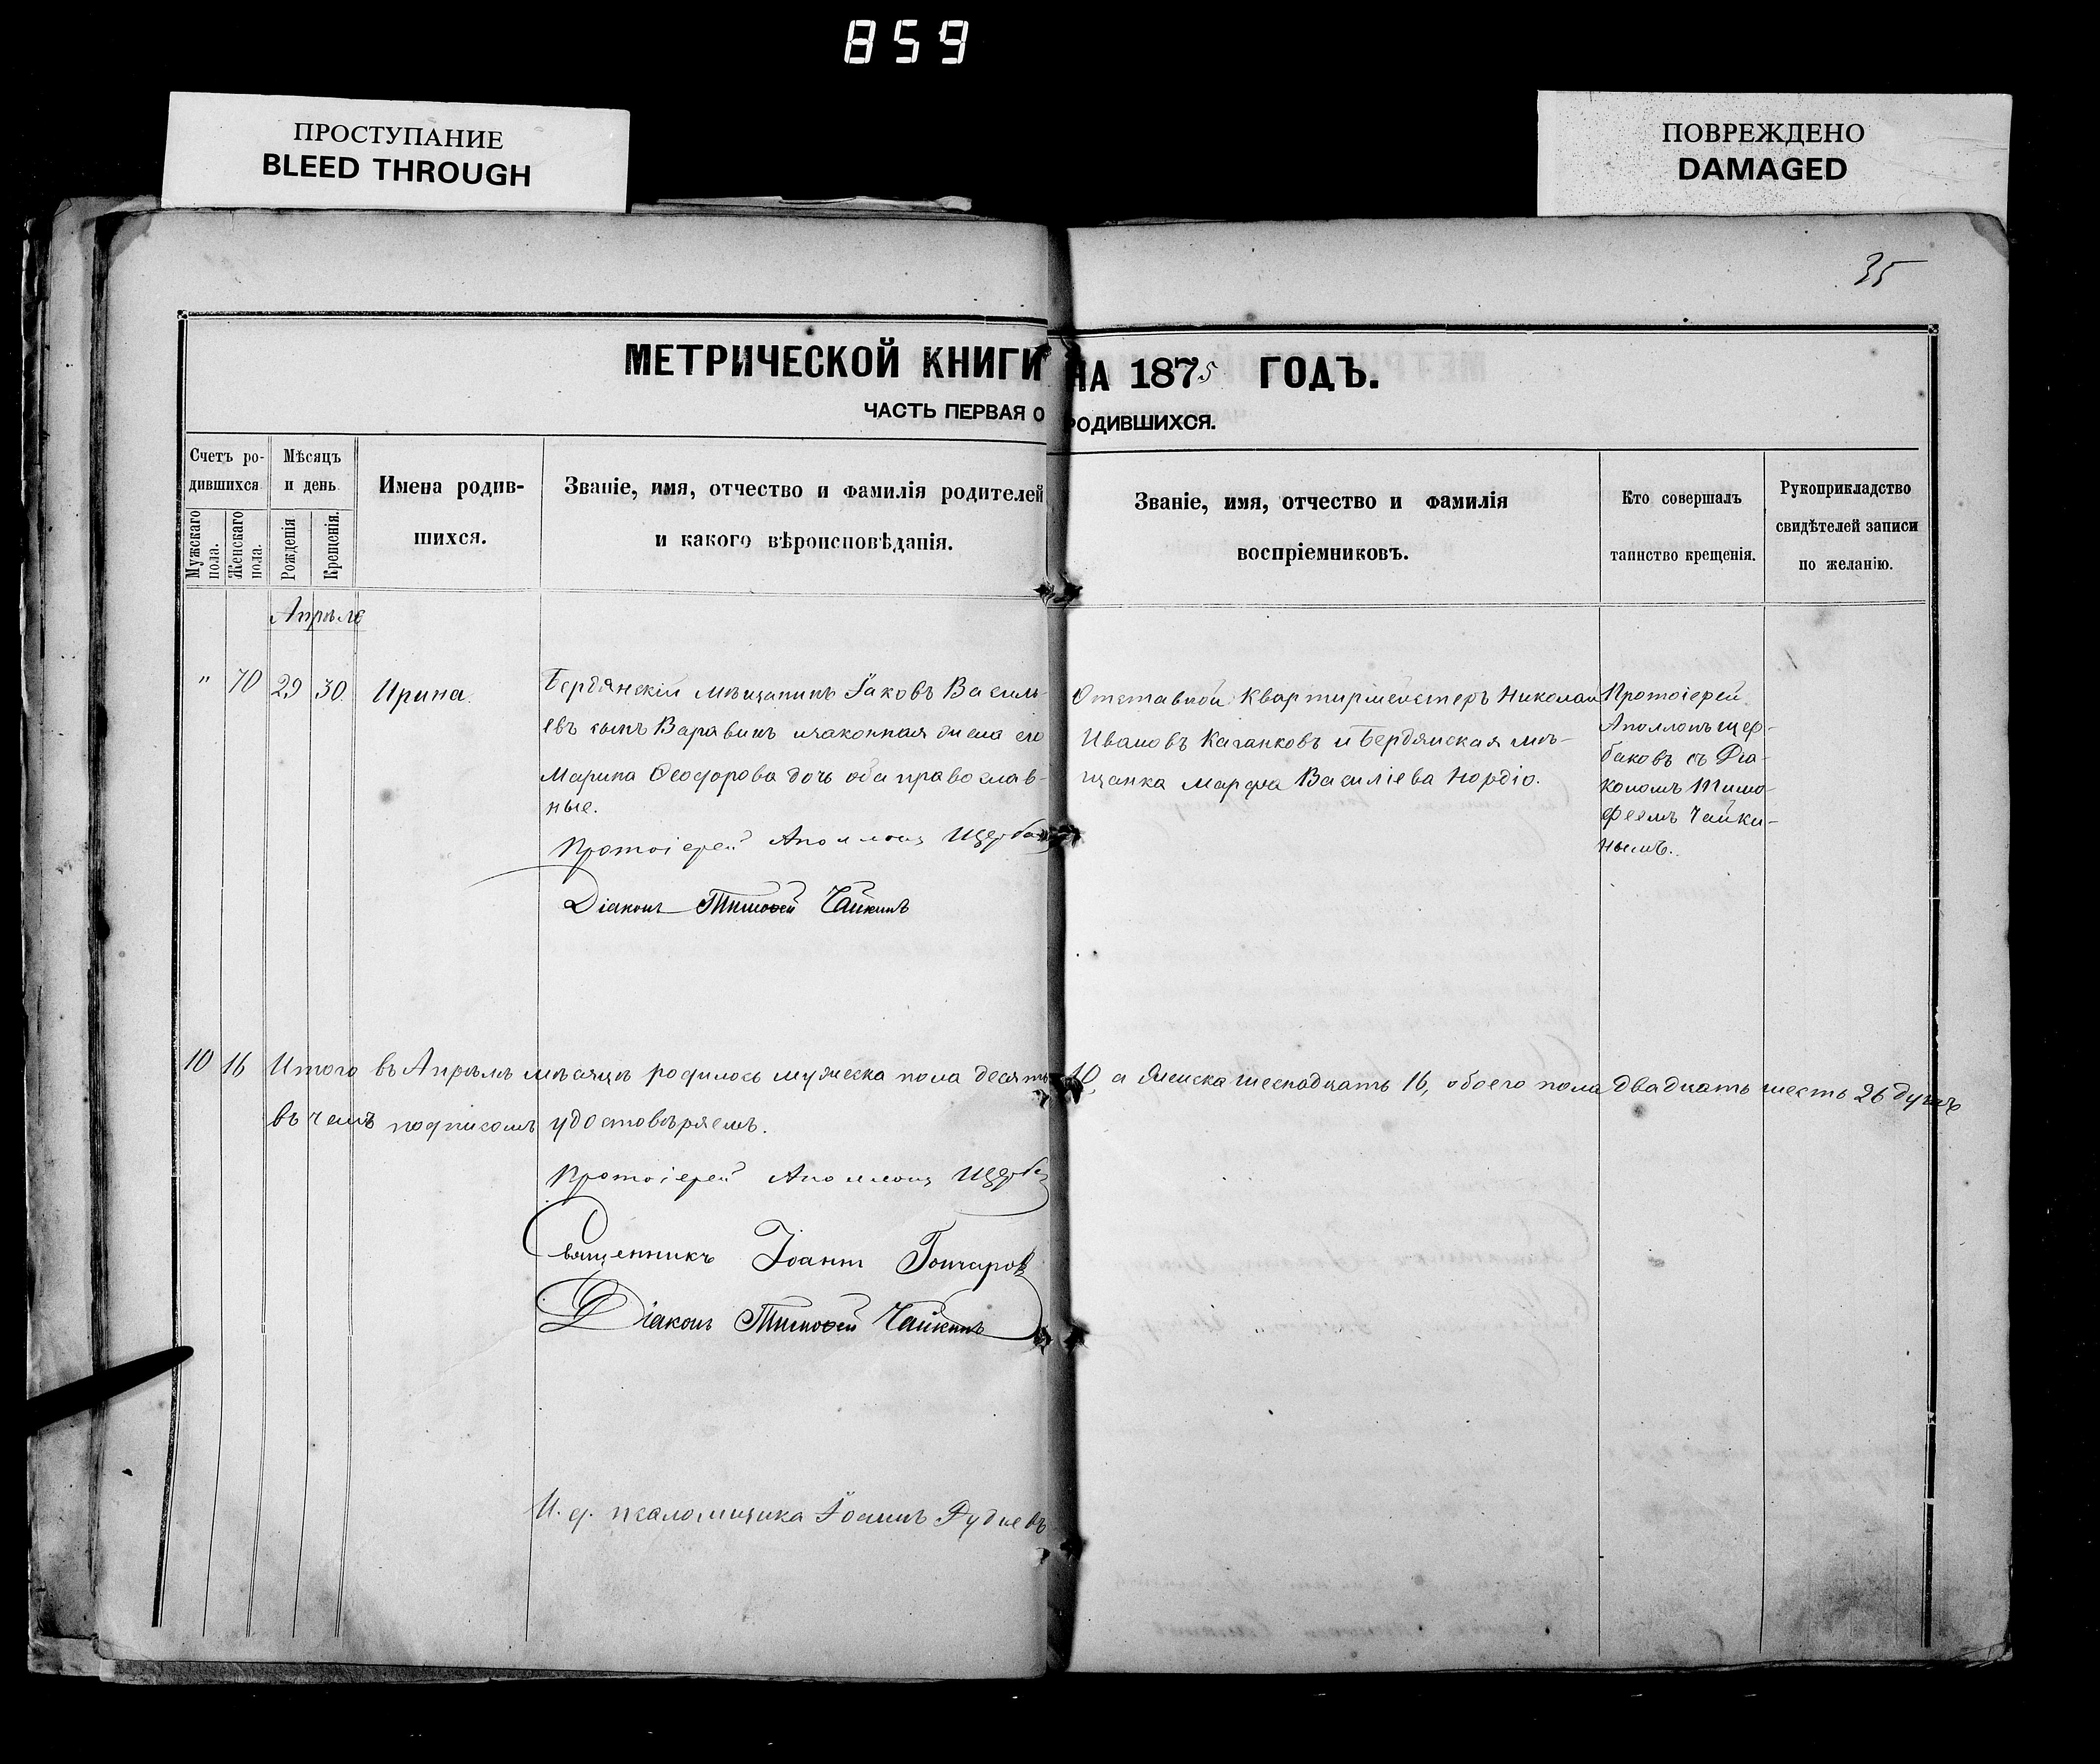 859
ПРОСТУПАНИЕ
BLEED THROUGH
ПОВРЕЖДЕНО
DAMAGED
35
МЕТРИЧЕСКОЙ КНИГИ НА 1875 ГОДЪ.
ЧАСТЬ ПЕРВАЯ О РОДИВШИХСЯ.
Счетъ ро-
дившихся
Мужскаго пола.
Женскаго пола.
Мѣсяцъ
и день
Рожденія
Крещенія.
Имена родив-
шихся.
Званіе, имя, отчество и фамилія родителей
и какого вѣроисповѣданія.
Званіе, имя, отчество и фамилія
воспріемниковъ.
Кто совершалъ
таинство крещенія.
Рукоприкладство
свидѣтелей записи
по желанію.
Апрѣле
" 70 29 30 Ирина.
Бердянскій мѣщанинъ Іаковъ Василь-
евъ сынъ Варавинъ изаконная жена его
Марина Ѳеодорова дочь оба православ-
ные.
Протоіерей Аполлонъ
Діаконъ Тимоѳей Чайкинъ
Отставной Квартирмейстеръ Николай
Ивановъ и Бердянская мѣ-
щанка Марфа Василіева
Протоіерей
Аполлонъ Щер-
баковъ съ Діа-
кономъ Тимо-
феемъ Чайки-
нымъ.
10 16 Итого въ Апрѣлѣ мѣсяцѣ родилось мужеска пола десять 10 а женска шеснадцать 16, обоего пола двадцать шесть 26 душъ
въ чемъ подписомъ удостовѣряемъ.
Протоіерей Аполлонъ
Священникъ Іоаннъ Гончаровъ
Діаконъ Тимоѳей Чайкинъ
И. д. псаломщика Іоаннъ